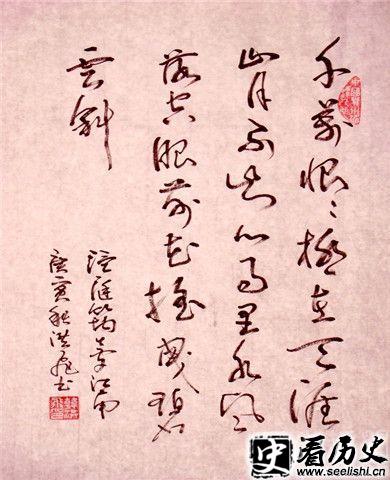 千萬恨〻極在天涯
山月不知心事里水风
落空眼前花摇曳碧
雲斜
温庭筠夢江南
庚寅秋洪飛书
史 看历史
www.seelishi.cn